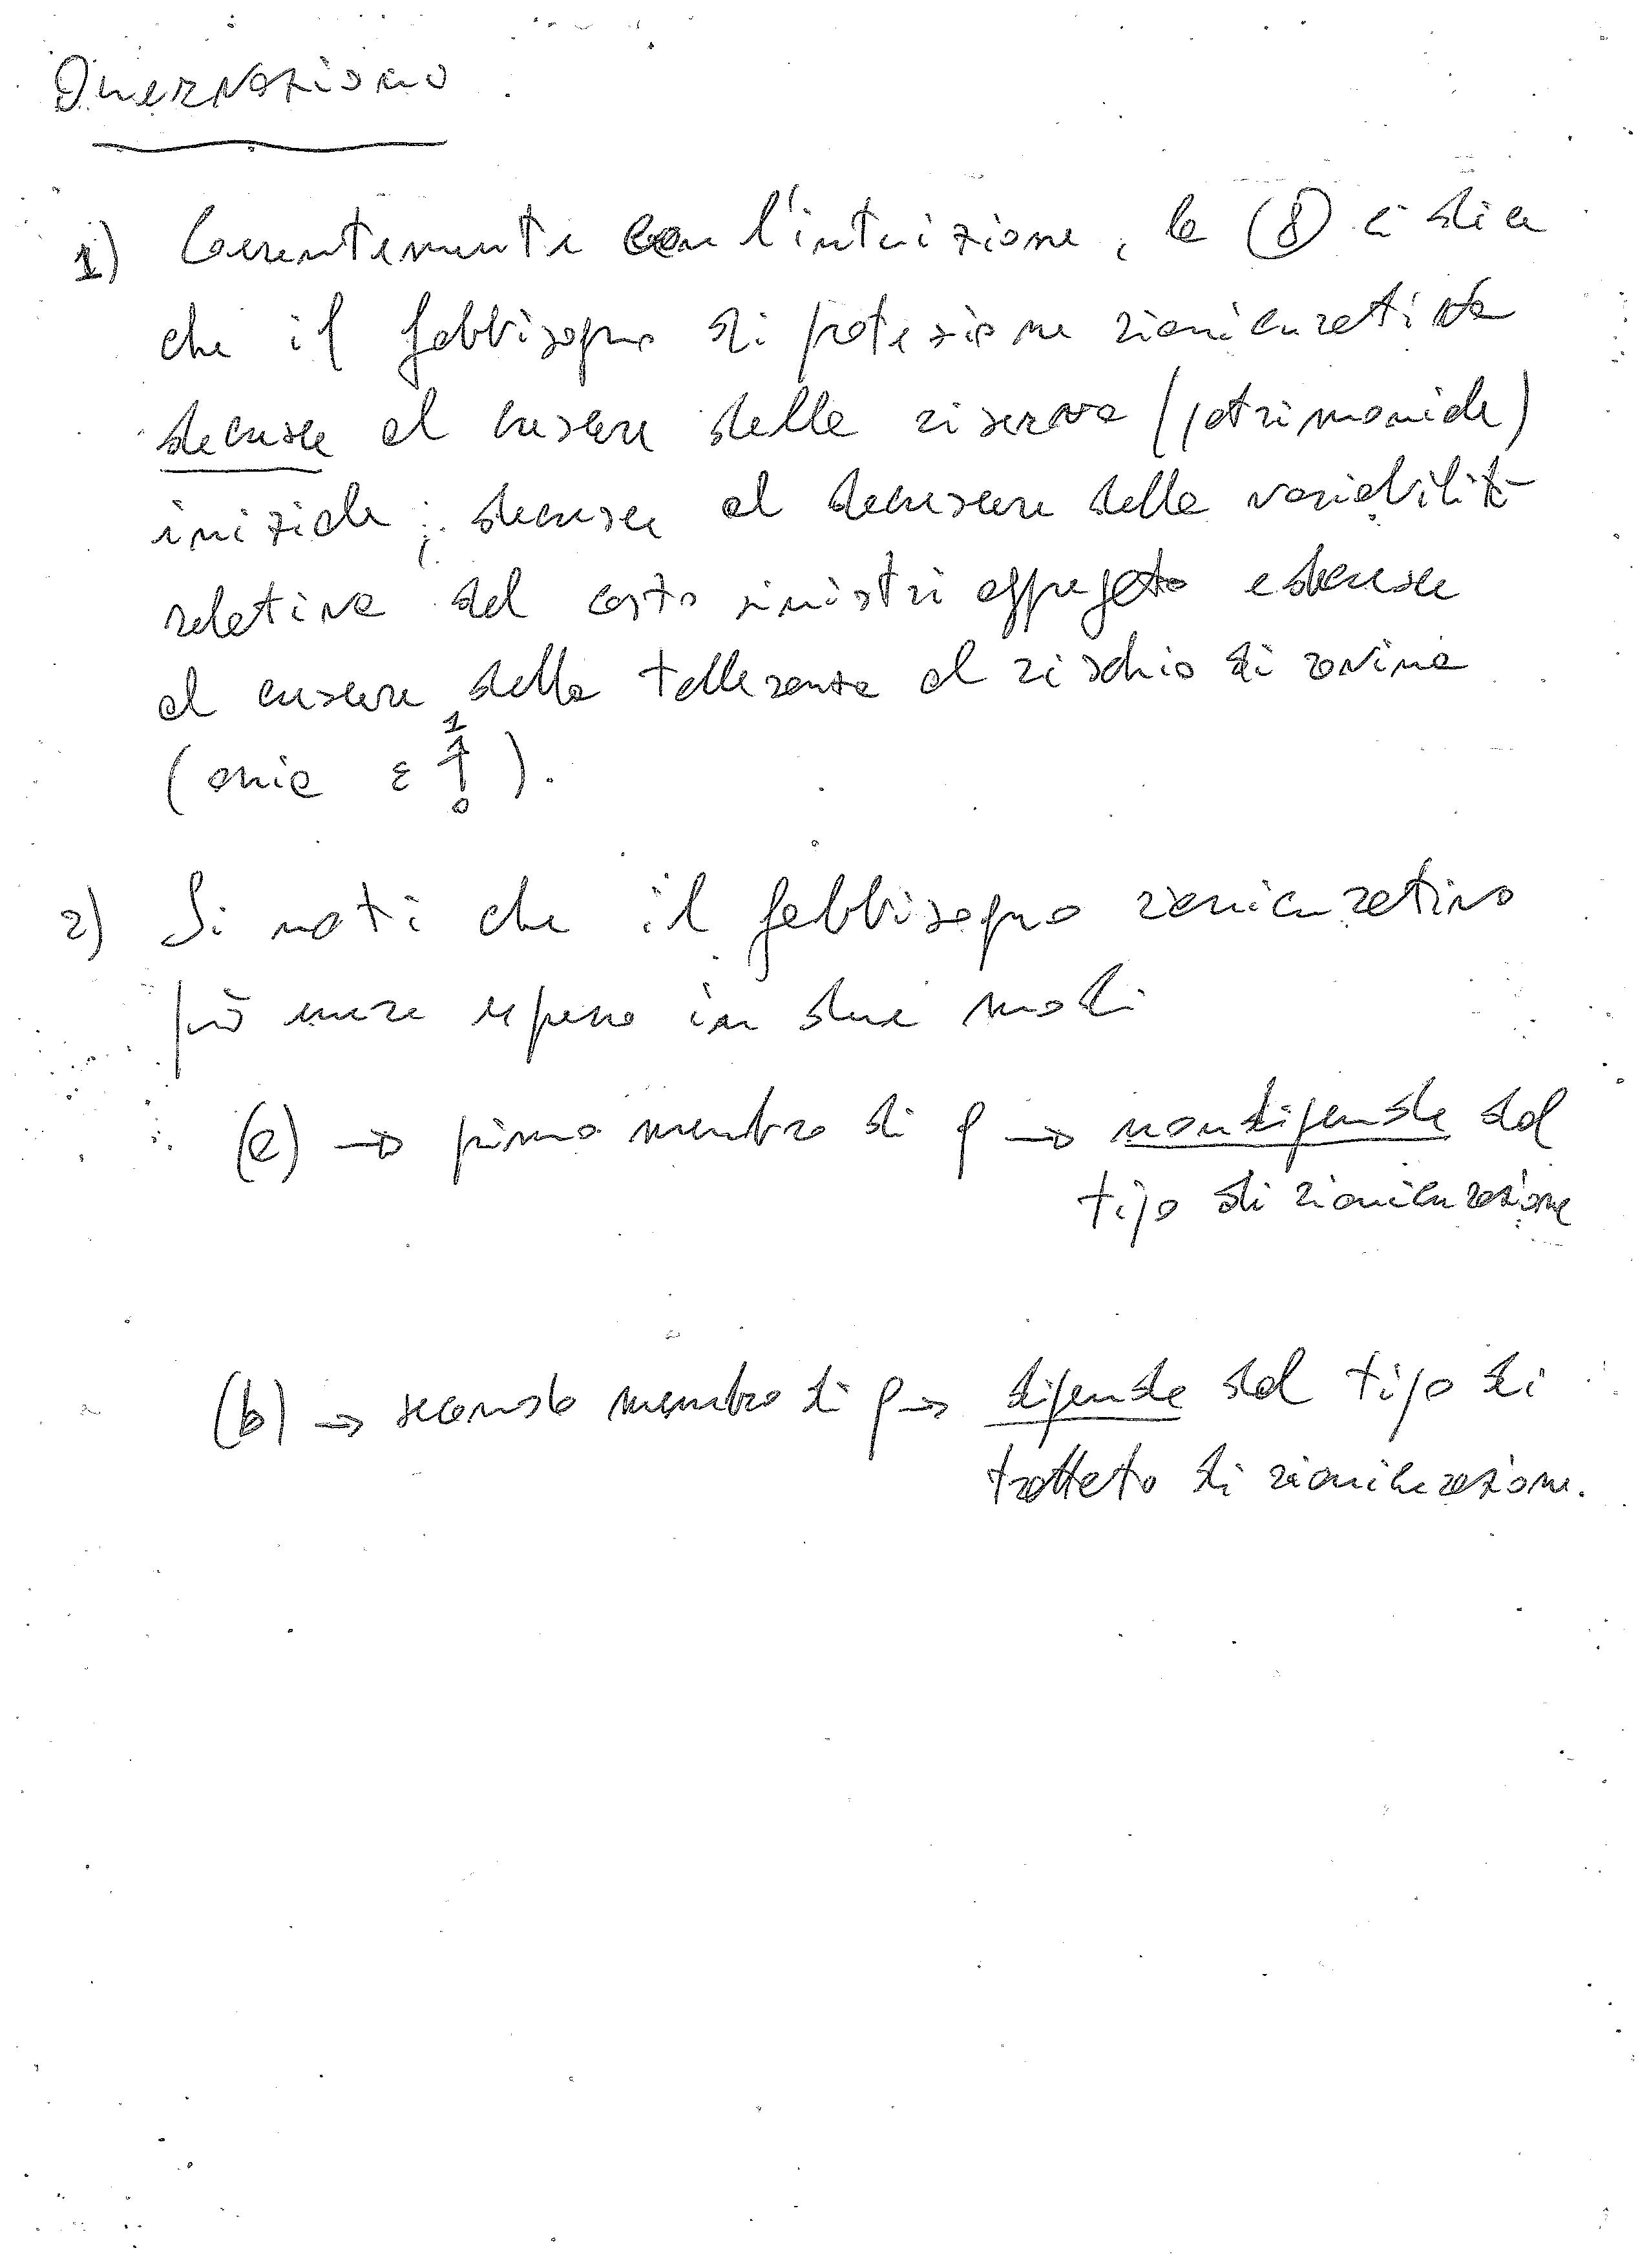 Osservazione
1) Coerentemente con l'intuizione, la (8) ci dice
che il fabbisogno di protezione riassicurativa
decresce al crescere della riserva (patrimoniale)
iniziale; decresce al decrescere della variabilità
relativa del costo sinistri aggregato e decresce
al crescere della tolleranza al rischio di rovina
(ossia ε ↑ 1 0).
2) Si noti che il fabbisogno riassicurativo
può essere espresso in due modi
(a) → primo membro di ρ → non dipende dal
tipo di riassicurazione
(b) → secondo membro di ρ → dipende dal tipo di
trattato di riassicurazione.